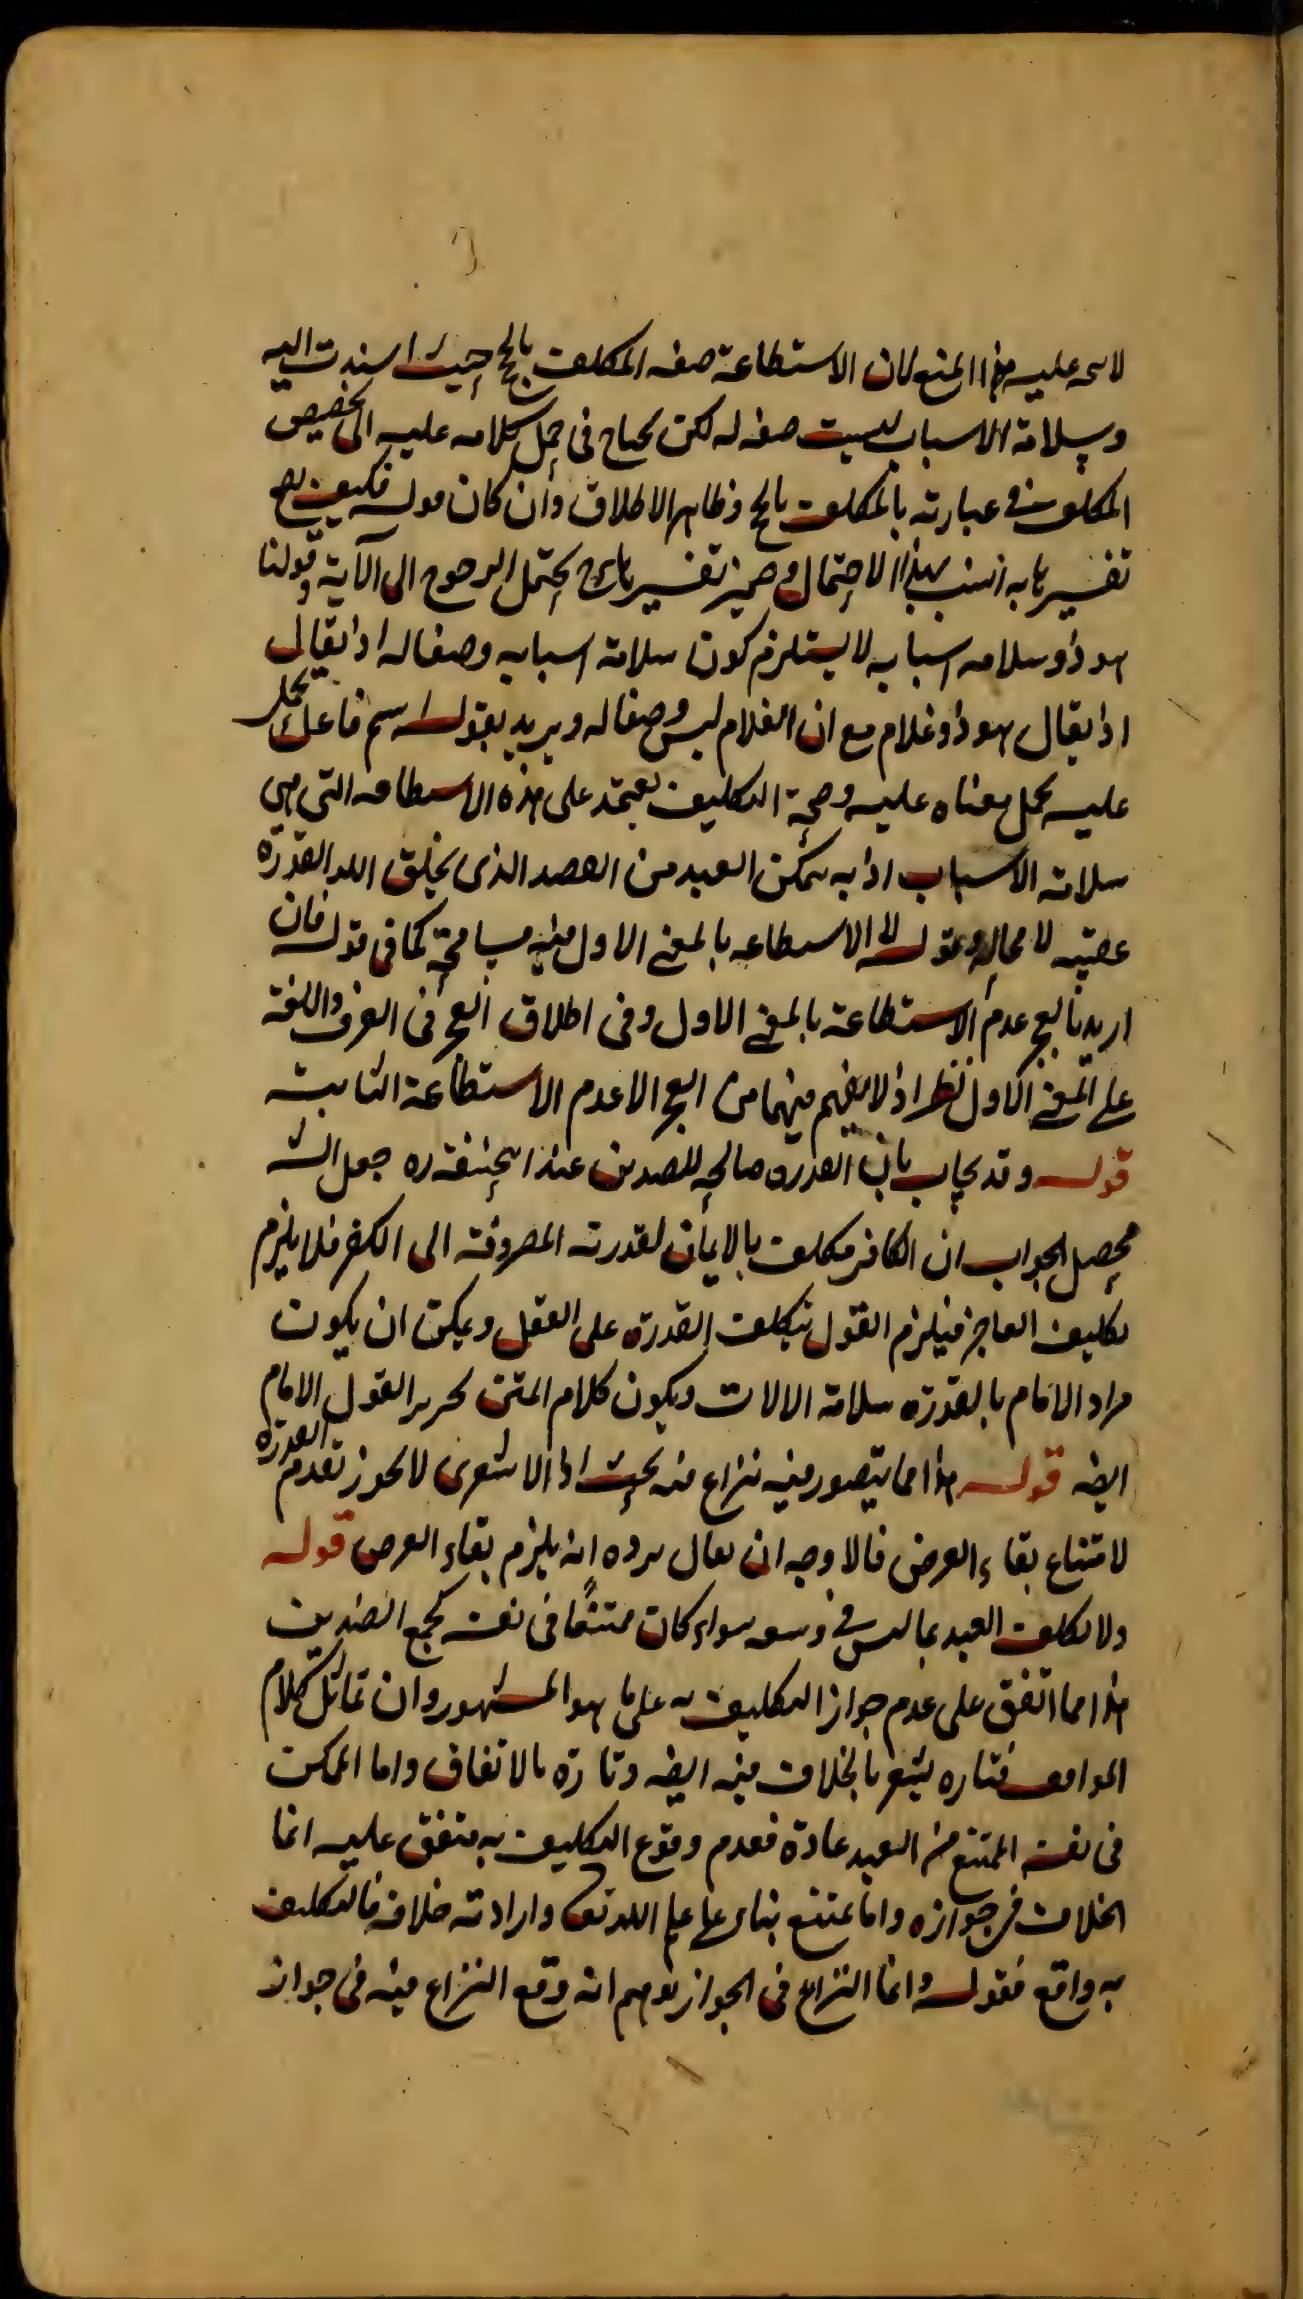 لا يتجه عليه هذا المنع لان الاستطاعة صفة المكلف بالحج حيث اسندت اليه
وسلامة الاسباب ليست صفة له لكن يحتاج فى حمل كلامه عليه الى تخصيص
المكلف فى عبارته بالمكلف بالحج وظاهره الاطلاق وان كان قوله فكيف يصح
تفسيرها به انسب بهذا الاحتمال وضمير تفسيرها يحتمل الرجوع الى الآية وقولنا
هو ذو سلامة اسبابه لا يستلزم كون سلامة اسبابه وصفا له اذ يقال
اذ يقال هو ذو غلام مع ان الغلام ليس وصفا له ويريد بقوله اسم فاعل يحمل
عليه يحمل معناه عليه وصحة التكليف يعتمد على هذه الاستطاعة التى هى
سلامة الاسباب اذ به يتمكن العبد من القصد الذى يخلق الله القدرة
عقيبه لا محالة وقوله لا الاستطاعة بالمعنى الاول فيه مسامحة كما فى قوله فان
اريد بالعجز عدم الاستطاعة بالمعنى الاول وفى اطلاق العجز فى العرف واللغة
على المعنى الاول نظر اذ لا يفهم فيهما من العجز الا عدم الاستطاعة الثابت
قوله وقد يجاب بان القدرة صالحة للضدين عند ابيحنيفة ره جعل الش
محصل الجواب ان الكافر مكلف بالايمان لقدرته المصروفة الى الكفر فلا يلزم
تكليف العاجز فيلزم القول بتكلف القدرة على الفعل ويمكن ان يكون
مراد الامام بالقدرة سلامة الالات ويكون كلام المتن تحريرا لقول الامام
ايضه قوله هذا مما يتصور فيه نزاع فيه بحث اذ الاشعرى لا يجوز تقدم القدرة
لامتناع بقاء العرض فالاوجه ان يقال يرده انه يلزم بقاء العرض قوله
ولا يكلف العبد بما ليس فى وسعه سواء كان ممتنعًا فى نفسه كجمع الضدين
هذا مما اتفق على عدم جواز التكليف به على ما هو المشهور وان تمايل كلام
المواقف فتارة يشعر بالخلاف فيه ايضه وتارة بالاتفاق واما الممكن
فى نفسه الممتنع من العبد عادة فعدم وقوع التكليف به متفق عليه انما
الخلاف فى جوازه واما يمتنع بناء على علم الله تع وارادته خلافه فالتكليف
به واقع فقوله وانما النزاع فى الجواز يوهم انه وقع النزاع فيه فى جواز